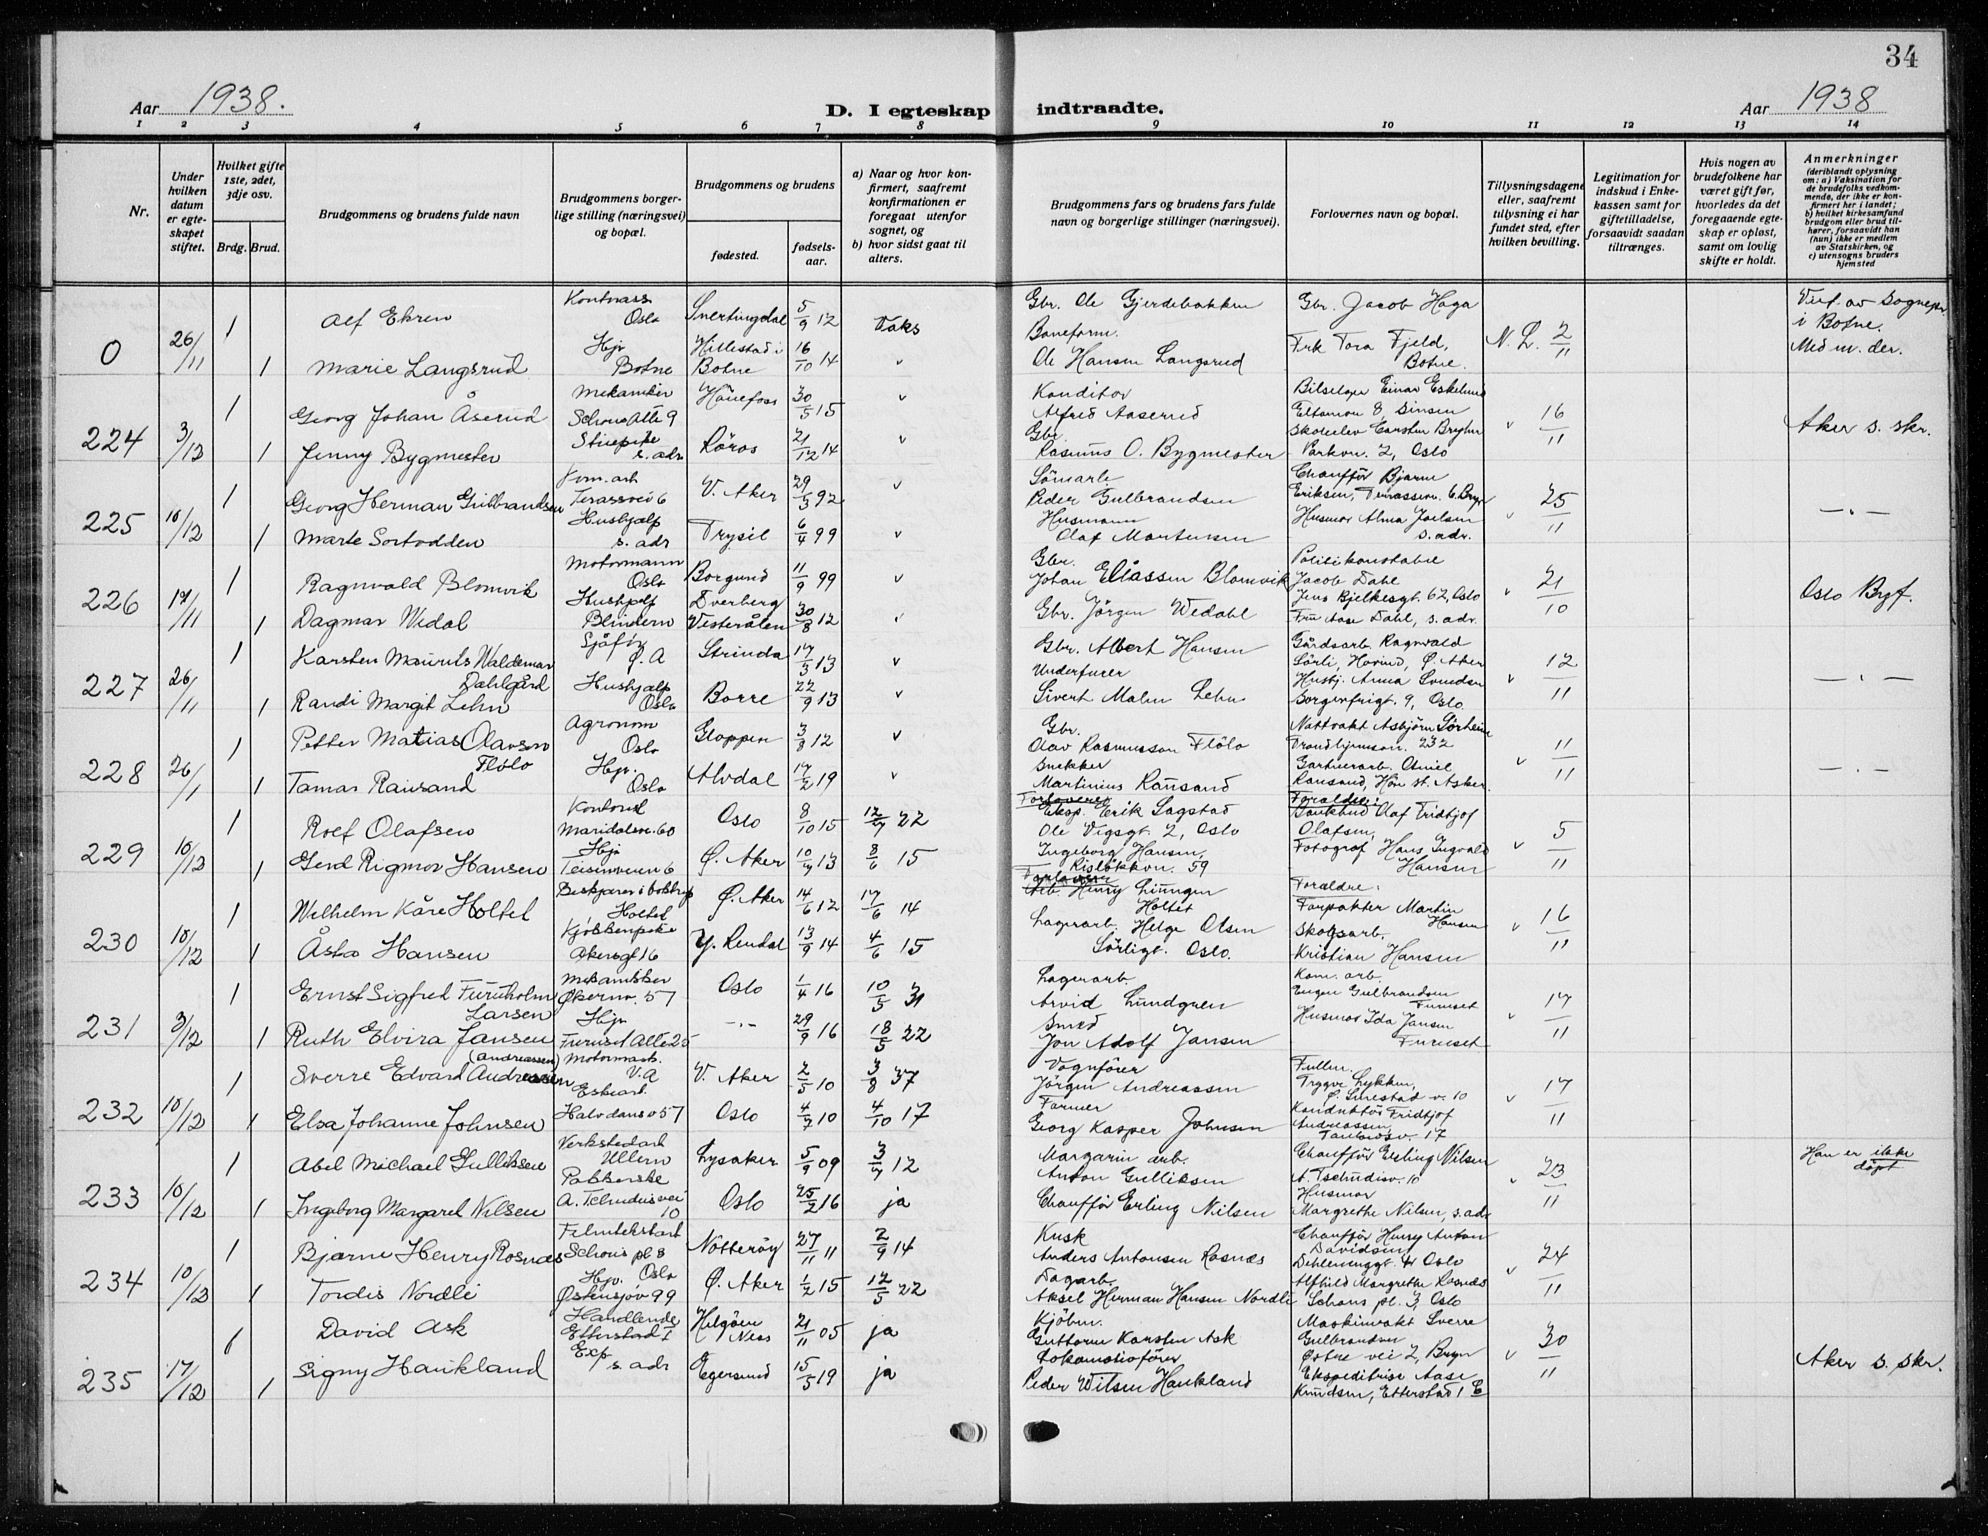 34
Aar 1938. D. I egteskap indtraadte. Aar 1938
1 2 3 4 5 6 7 8 9 10 11 12 13 14
Nr.
Under hvilken datum er egteskapet stiftet.
Hvilket gifte 1ste, 2det, 3dje osv.
Brdg. Brud.
Brudgommens og brudens fulde navn
Brudgommens borgerlige stilling (næringsvei) og bopæl.
Brudgommens og brudens
fødested. fødsels-aar.
a) Naar og hvor konfirmert, saafremt konfirmationen er foregaat utenfor sognet, og
b) hvor sidst gaat til alters.
Brudgommens fars og brudens fars fulde navn og borgerlige stillinger (næringsvei).
Forlovernes navn og bopæl.
Tillysningsdagene eller, saafremt tillysning ei har fundet sted, efter hvilken bevilling.
Legitimation for indskud i Enkekassen samt for giftetilladelse, forsaavidt saadan tiltrænges.
Hvis nogen av brudefolkene har været gift før, hvorledes da det foregaaende egteskap er opløst, samt om lovlig skifte er holdt.
Anmerkninger (deriblandt oplysning om: a) Vaksination for de brudefolks vedkommende, der ikke er konfirmert her i landet; b) hvilket kirkesamfund brudgom eller brud tilhører, forsaavidt han (hun) ikke er medlem av Statskirken, og c) utensogns bruders hjemsted
0 26/11 1 Alf Ehren Oslo Snertingdal 5/9 12 Vaks Gbr. Ole Gjerdebakken Gbr. Jacob Haga N. L. 2/11 i Botne.
1 Marie Langsrud Hjr Botne Hillestad i Botne 16/10 14 v Baneform. Ole Hansen Langsrud Frk Tora Fjeld, Botne.
224 3/12 1 Georg Johan Åserud Mekaniker Schous Alle 9 Hønefoss 30/5 15 v Konditor Alfred Aaserud Einar Eskelund Sinsen v 16/11 Aker s. skr.
1 Jenny Bygmester s. adr Røros 21/12 14 v Gbr. Rasmus O. Bygmester Parkvn. 2, Oslo
225 10/12 1 Georg Herman Gulbrandsen Terassevei 6 V. Aker 29/3 92 v Peder Gulbrandsen Chauffør Bjarne Eriksen, Terrassevn. 6 Bryn v 25/11 —„—
1 Marte Sortodden Hushjælp s. adr Trysil 6/4 99 v Husmann Olaf Mortensen Husmor Alma Joelsen s. adr.
226 17/11 1 Ragnvald Blomvik Motormann Oslo Borgund 11/9 99 v Gbr. Johan Eliassen Blomvik Politikonstabel Jacob Dahl Jens Bjelkesgt. 62, Oslo v 21/10 Oslo Bygf.
1 Dagmar Wedal Hushjelp Blindern Dverberg Vesterålen 30/8 12 v Gbr. Jørgen Wedahl Fru Aase Dahl, s. adr.
227 26/11 1 Karsten Maurits Waldemar Dahlgård Sjåfør Ø. A Strinda 17/3 13 v Gbr. Albert Hansen Gårdsarb. Ragnvald Sørli, Hovind, Ø. Aker v 12/11 —„—
1 Randi Margit Lehn Hushjælp Oslo Borre 22/9 13 v Underfurer Sivert Malen Lehn Husbj. Anna Svendsen Borgenfrigt. 9, Oslo
228 26/1 1 Petter Matias Olavson Flølo Agronom Oslo Gloppen 3/8 12 v Gbr. Olav Rasmusson Flölo Nattvakt Asbjørn Sørheim Trondhjemsvn. 232 v 11/11 —„—
1 Tamar Rausand Hjr. Oslo Alvdal 17/2 19 v Snekker Martinius Rausand Gartnerarb. Rausand, Høn st. Asker.
229 10/12 1 Rolf Olafsen Maridalsvn. 60 Oslo 8/10 15 12/7 22 Forlovere: Eksp. Erik Sagstad Ole Vigsgt. 2, Oslo Foreldre: Olaf Fridtjof Olafsen v 5/11
1 Gerd Rigmor Hansen Hjr Teisenveien 6 Ø. Aker 10/7 13 8/6 15 Ingeborg Hansen, Risløkkvn. 59 Fotograf Hans Ingvald Hansen
230 10/12 1 Wilhelm Kåre Holtet Holtet Ø. Aker 14/6 12 17/6 14 Forlovere Arb. Henry Ljungen Holtet Foreldre: Forpakter Martin Hansen v 16/11
1 Åsta Hansen Kjøkkenpike Akersgt 16 Y. Rendal 13/9 14 4/6 15 Lagerarb. Helge Olsen Sørligt. Oslo. Skogsarb. Kristian Hansen
231 3/12 1 Ernst Sigfred Furuholm Larsen Mekaniker Økernv. 57 Oslo 1/4 16 10/5 31 Lagerarb. Arvid Lundgren Kom. arb. Eugen Gulbrandsen Furuset v 17/11
1 Ruth Elvira Jansen Hjr Furuset Alle 25 —„— 29/9 16 18/5 22 Smed Jon Adolf Jansen Husmor Ida Jansen Furuset
232 10/12 1 Sverre Edvard Andresen (Andreassen) V. A V. Aker 2/5 10 3/8 37 Vognfører Jørgen Andreassen Trygve Lykken, v 17/11
1 Elsa Johanne Johnsen 57 Oslo 4/7 10 4/10 17 Farmer Georg Kasper Johnsen Konduktør Fridtjof Andreassen 17
233 10/12 1 Abel Michael Gulliksen Verkstedarb Ullern Lysaker 5/9 09 3/7 12 Margarin arb. Anton Gulliksen Chauffør Erling Nilsen A. Tschudisv. 10 v 23/11 Han er ikke døpt
1 Ingeborg Margaret Nilsen Pakkerske 10 Oslo 25/2 16 ja Chauffør Erling Nilsen Husmor Margrethe Nilsen, s. adr
234 10/12 1 Bjarne Henry Rosnæs Schous pl 8 Oslo Nøtterøy 27/11 11 2/9 14 Kusk Anders Antonsen Rosnæs Chauffør Henry Anton Davidsen Oslo v 24/11
1 Tordis Nordli Hjr. Østensjøv 99 Ø. Aker 1/2 15 12/5 22 Dagarb. Aksel Herman Hansen Nordli Alfhild Margrethe Rosnæs Schous pl. 3, Oslo
235 17/12 1 David Ask Handlende Etterstad 1 Helgøen Ness 21/11 05 ja Kjøbm. Guttorm Karsten Ask Maskinvakt Sverre Gulbrandsen Østre vei 2, Bryn v 30/11 Aker s. skr.
1 Signy Haukland Exp s. adr Egersund 15/5 19 ja Lokomotivfører Peder Wilsen Haukland Ekspeditrise Aase Knudsen, Etterstad 1 E